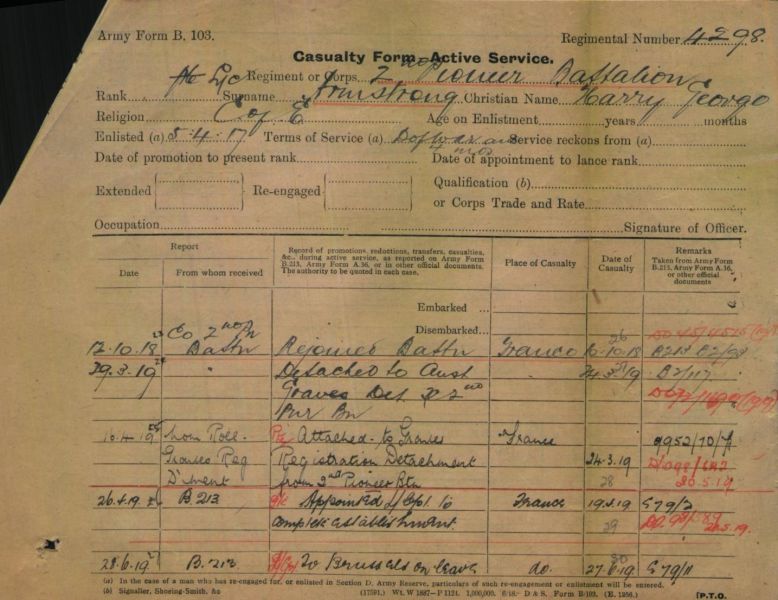 Army Form B. 103.
Regimental Number 4298.
Casualty Form. Active Service.
Regiment or Corps 2nd Pioneer Battalion
Rank L/c Surname Armstrong Christian Name Harry George
Religion C of E Age on Enlistment years months
Enlisted (a) 5.4.17 Terms of Service (a) Service reckons from (a)
Date of promotion to present rank Date of appointment to lance rank
Extended Re-engaged Qualification (b)
or Corps Trade and Rate
Occupation Signature of Officer.
Report
Record of promotions, reductions, transfers, casualties, &c., during active service, as reported on Army Form B.213, Army Form A.36, or in other official documents. The authority to be quoted in each case.
Place of Casualty
Date of Casualty
Remarks
Taken from Army Form B.213, Army Form A.36, or other official documents
Date From whom received
Embarked
Disembarked
Co 2nd Pnr
12.10.18 Battn Rejoined Battn France 10.18
29.3.19 " Detached to Aust 24.3.19 B2/117
Graves Det. 2nd
Pnr Bn
10.4.19 from Roll Attached to Graves France 9952/70/
Graves Reg Registration Detachment 24.3.19
D'ment from 2nd Pioneer Btn 28 20.5.19
26.4.19 B.213 Appointed L/Cpl. to France 19.4.19 E79/2
complete establishment. 29
28.6.19 B.213 To Brussels on leave do. 27.6.19 E79/11
(a) In the case of a man who has re-engaged for, or enlisted in Section D, Army Reserve, particulars of such re-engagement or enlistment will be entered.
(b) Signaller, Shoeing-Smith, &c
(17591.) Wt. W 1887—P 1124. 1,000,000. 6/18.- D & S. Form B/103. (E. 1256.) [P.T.O.